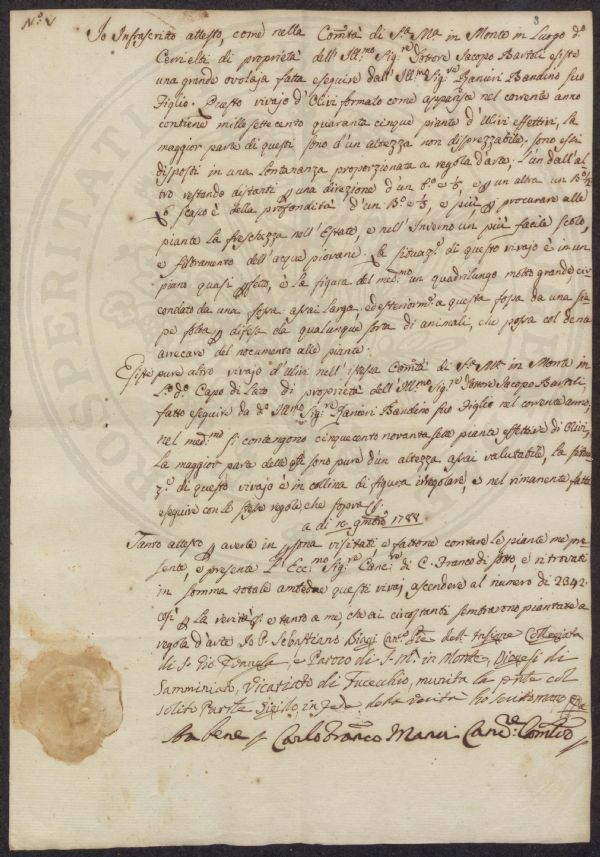 N.º V
8
Io Infrascritto attesto, come nella Com.tà di S.ta M.a in Monte in Luogo d.º
Cerrielti di proprietà dell' Ill.mo Sig.re Dottore Jacopo Bartoli esiste
una grande ovolaja fatta eseguire dall' Ill.mo Sig.re Ranieri Bandino suo
Figlio. Questo vivajo d'Olivi formato come apparisce nel corrente anno
contiene mille settecento quaranta cinque piante d'Ulivi effettivi, la
maggior parte di questi sono d'un altezza non disprezzabile. sono essi
disposti in una Lontananza proporzionata a regola d'arte; l'un dall'al
tro restando distanti una direzione d'un B.º e un altra un B.º
scasso è della profondità d'un B.º e più, procurare alle
piante la freschezza nell'Estate, e nell'Inverno un più facile scolo,
e filtramento dell'acque piovane. La situaz.e di questo vivajo è in un
piano quasi pfetto, e la figura del med.mo un quadrilungo molto grande, cir
condato da una fossa assai larga, ed esteriorm.e a questa fossa da una sie
pe folta difesa da qualunque sorta di animali, che possa col dena
arrecare del nocumento alle piante.
Esiste pure altro vivajo d'Ulivi nell'istessa Com.tà di S.ta M.a in Monte in
L.º d.º Capo di Lato di proprietà dell' Ill.mo Sig.re Dottore Jacopo Bartoli,
fatto eseguire da d.º Ill.mo Sig.re Ranieri Bandino suo Figlio nel corrente anno,
nel med.mo si contengono cinquecento novanta sette piante effettive di Olivi,
la maggior parte delle q.li sono pure d'un altezza assai valutabile, la situa
z.e di questo vivajo è in collina di figura irregolare, e nel rimanente fatta
eseguire con le stesse regole che sopra
a di 10 9mbre 1788
Tanto attesto p averle in psona visitati, e fattone contare le piante me pre
sente, e presente L'Ecc.mo Sig.re Canc.re di C. Franco di sotto, e ritrovati
in somma totale amedue questi vivaj ascendere al numero di 2342.
così p La verità e tanto a me che ai circostanti sembravano piantate a
regola d'arte Io P. Sebastiano Biagi dell' Insigne Collegiata
di S. Gio e Paroco di S. M.a in Monte, Diogesi di
Samminiato, Vicariato di Fucecchio, munita la p.nte col
solito Sigillo, in fede della verità ho scritto mano pp.a
Sta bene Carlo Franco Manri Canc.re Com.tivo